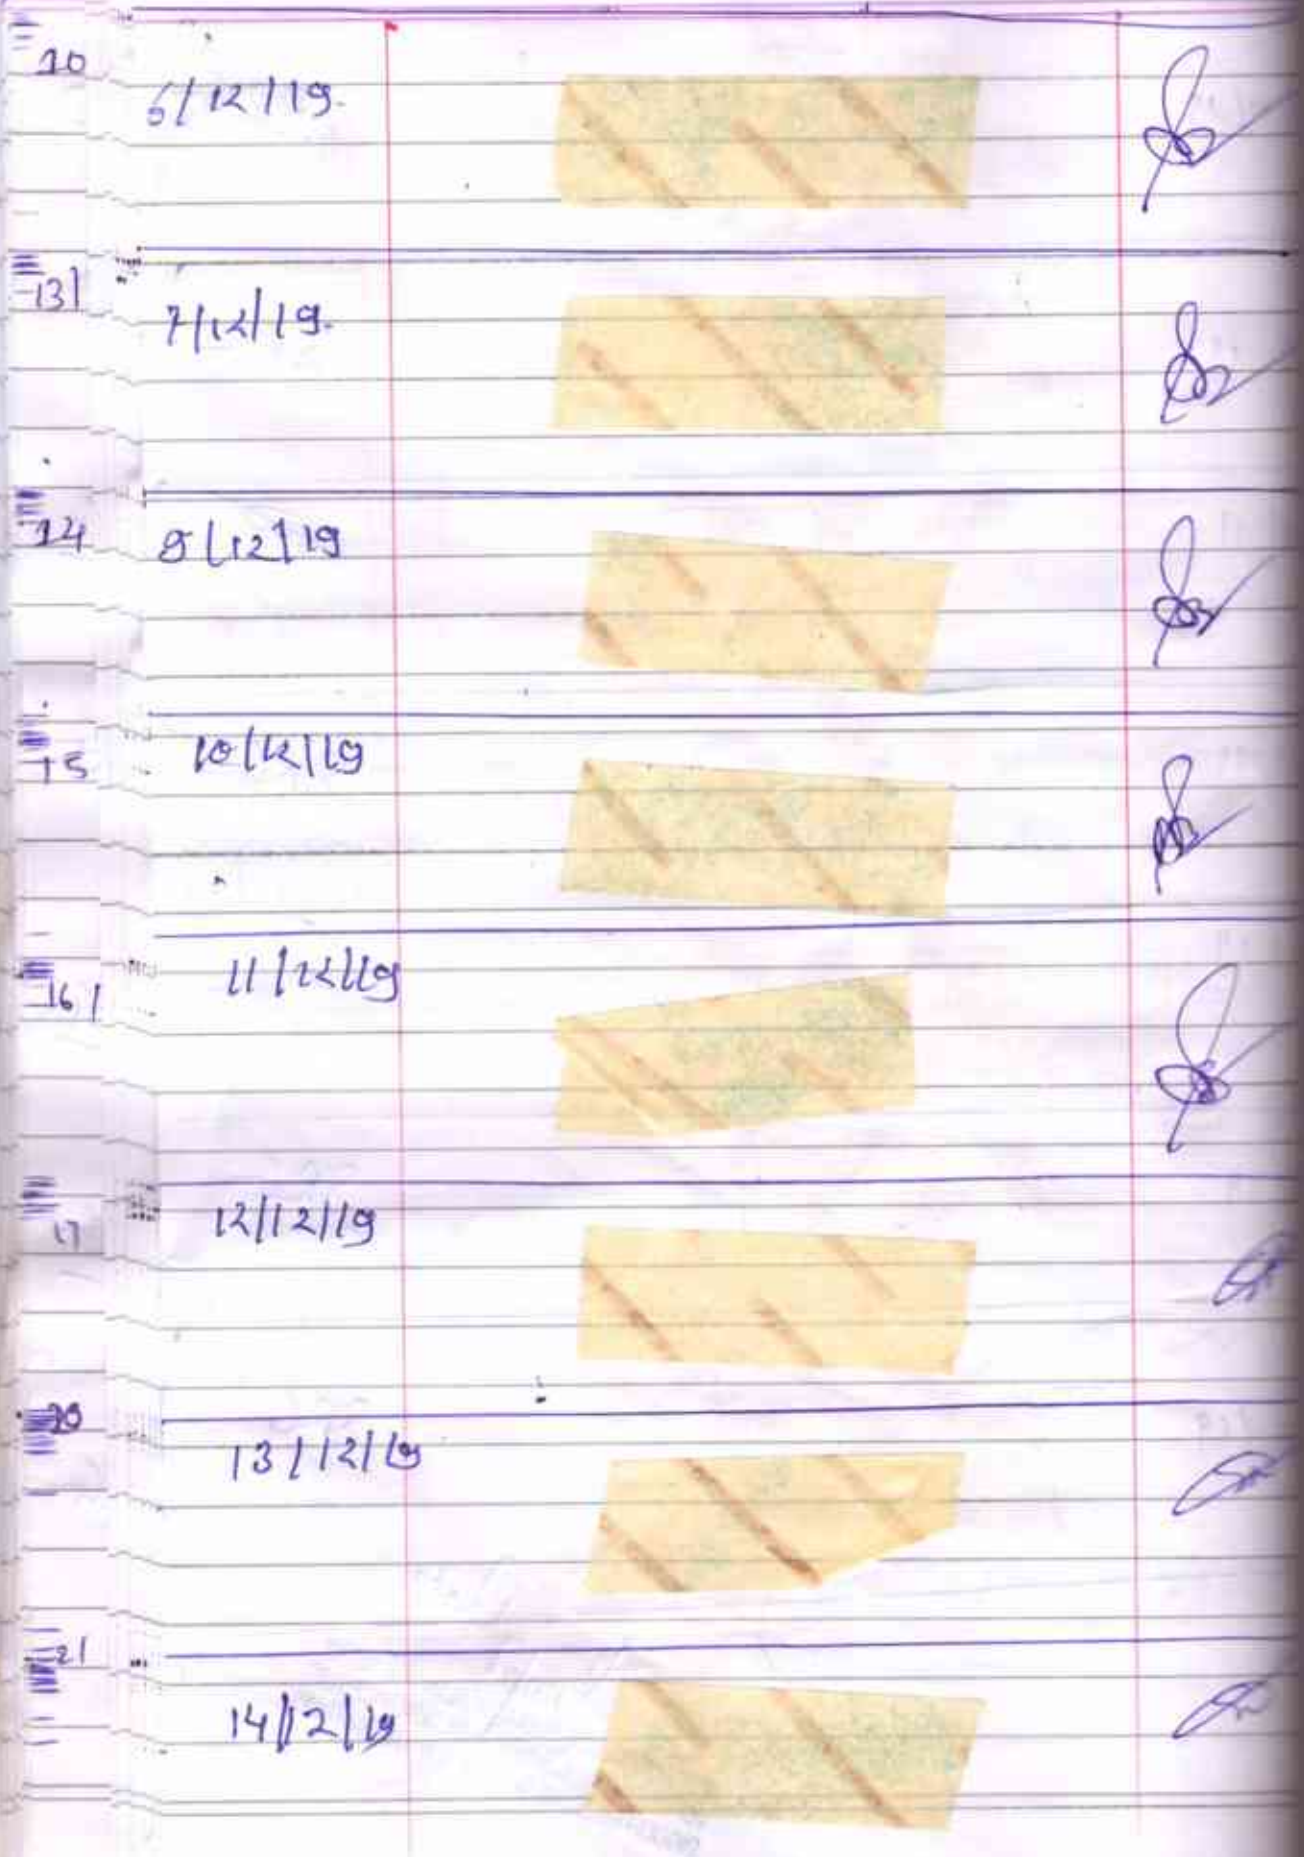 10
6/12/19.
13
7/12/19.
14
9/12/19
15
10/12/19
16
11/12/19
17
12/12/19
20
13/12/19
21
14/12/19